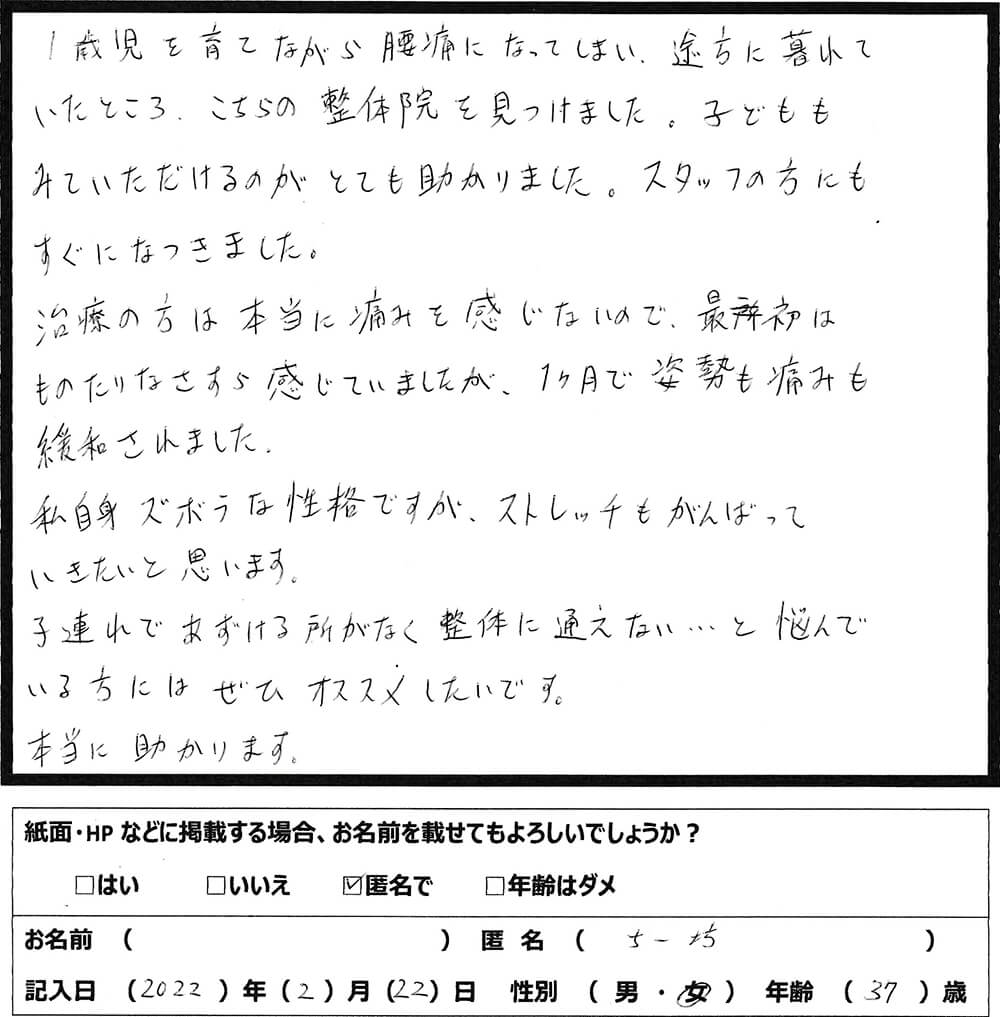 1歳児を育てながら腰痛になってしまい、途方に暮れて
いたところ、こちらの整体院を見つけました。子どもも
みていただけるのがとても助かりました。スタッフの方にも
すぐになつきました。
治療の方は本当に痛みを感じないので、最初は
ものたりなさすら感じていましたが、1ヶ月で姿勢も痛みも
緩和されました。
私自身ズボラな性格ですが、ストレッチもがんばって
いきたいと思います。
子連れであずける所がなく整体に通えない…と悩んで
いる方にはぜひオススメしたいです。
本当に助かります。
紙面・HPなどに掲載する場合、お名前を載せてもよろしいでしょうか？
□はい □いいえ ☑匿名で □年齢はダメ
お名前 （ ） 匿名 （ ちー坊 ）
記入日 （2022）年（2）月（22）日 性別 （ 男 ・ 女 ） 年齢 （ 37 ）歳